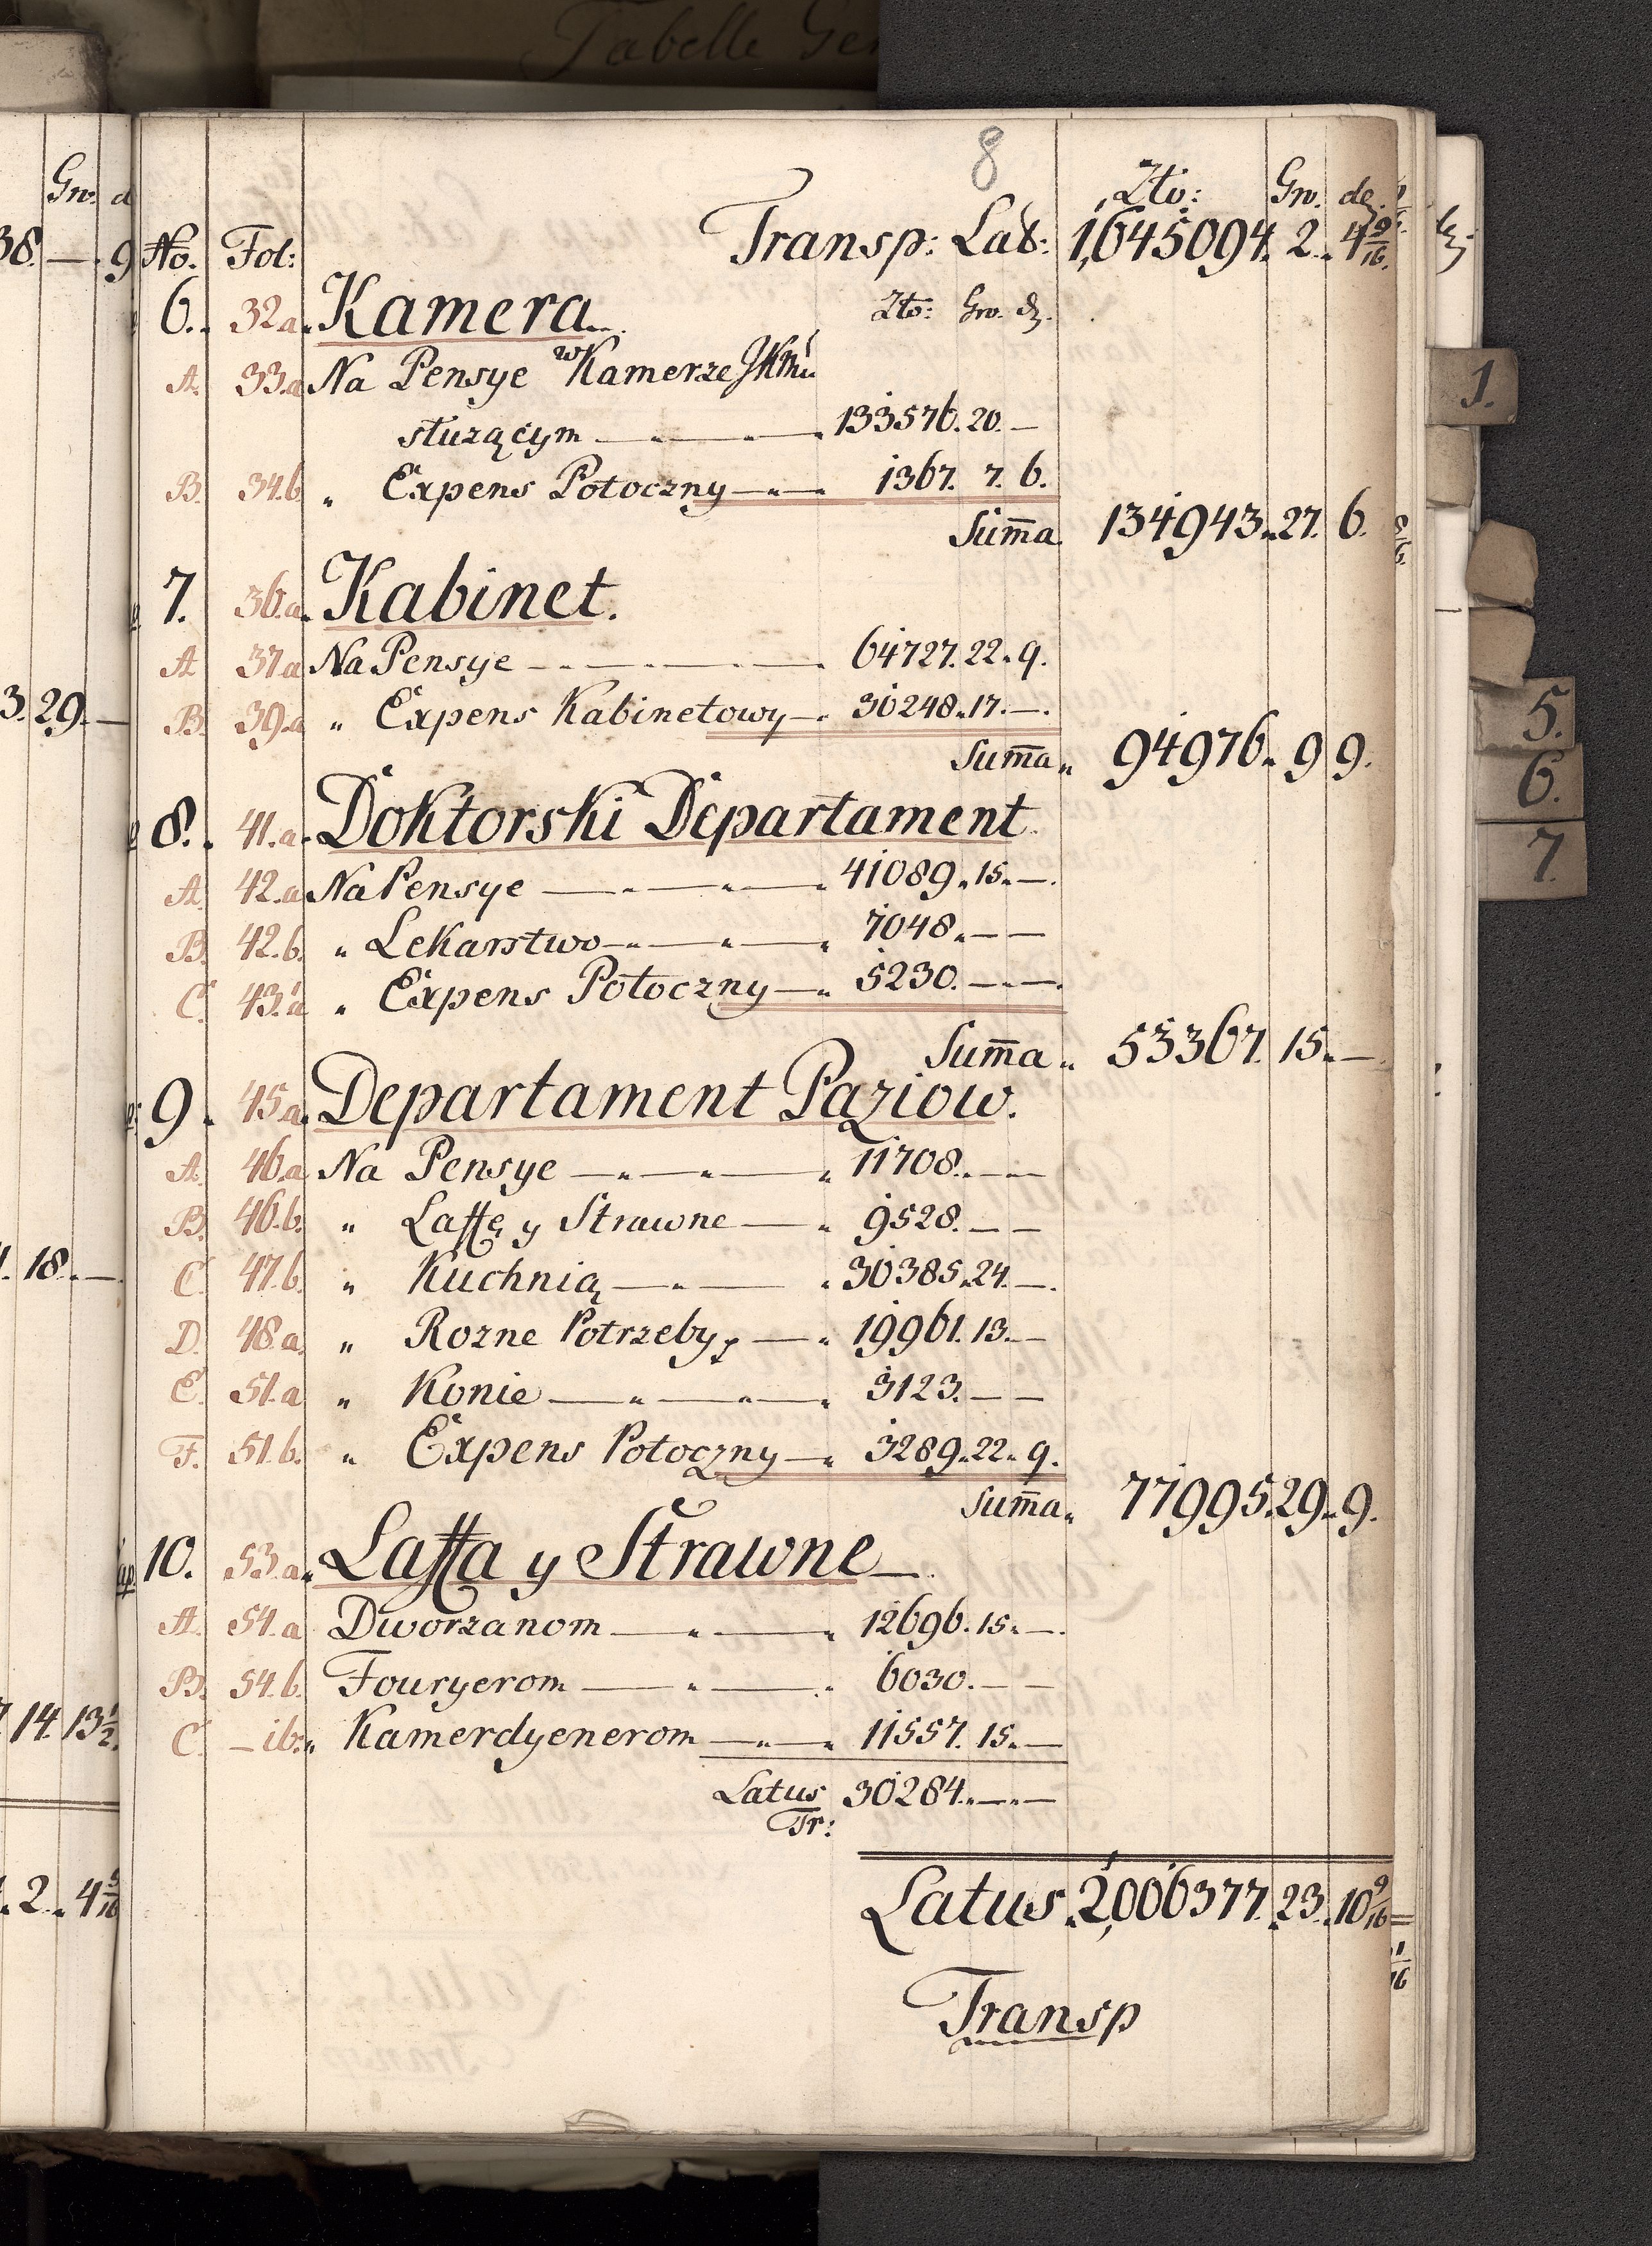 Tabelle Ge
8
Zło: Gro. de.
No. Fol: Transp: Lat: 1,645094. 2. 4 9/16.
6. 32a. Kamera. Zło: Gro. d.
A. 33.a Na Pensye w Kamerze JKMci
służącym 133576. 20. —
B. 34.b. " Expens Potoczny 1367. 7. 6.
Sum̅a 134943. 27. 6.
7. 36.a. Kabinet.
A 37.a Na Pensye 64727. 22. 9.
B. 39.a " Expens Kabinetowy 30248. 17. —
Sum̅a 94976. 9 9.
8. 41.a. Doktorski Departament
A. 42.a Na Pensye 41089. 15. —
B. 42.b. " Lekarstwo 7048. — —
C. 43.a " Expens Potoczny 5230. — —
Sum̅a 53367. 15. —
9. 45.a. Departament Paziow.
A. 46.a Na Pensye 11708. — —
B. 46.b. " Laffę y Strawne 9528. — —
C. 47.b. " Kuchnią 30385. 24. —
D. 48.a. " Rozne Potrzeby 19961. 13. —
E. 51.a " Konie 3123. — —
F. 51.b. " Expens Potoczny 3289. 22. 9.
Sum̅a 77995. 29. 9.
10. 53.a. Laffa y Strawne
A. 54.a Dworzanom 12696. 15. —
B. 54.b. Fouryerom 6030. — —
C. — ib: Kamerdyenerom 11557. 15. —
Latus 30284. — —
Tr:
Latus 2,006377. 23. 10 9/16
Transp
Gro. d
38. — 9
3. 29. —
. 18. —
14. 13 1/2.
. 2. 4 9/16
1.
5.
6.
7.